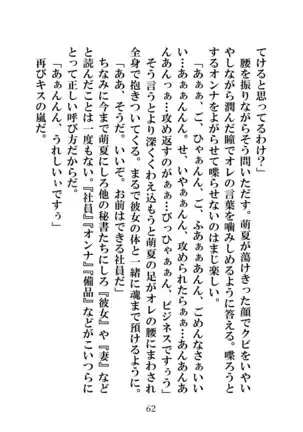 てけると思ってるわけ？」
腰を振りながらそう問いただす。萌夏の蕩けきった顔でクビをいや
やしながら潤んだ瞳でオレの言葉を噛みしめるように答える。喋ろうと
するオンナをよがらせて喋らせないのはまじ楽しい。
「あぁぁ、ご、ひゃぁぁん、ごめ、あんあぁん、ごめんなさぁいい
い…あぁぁんんん。せ、いやぁん、攻められたらぁ…あんあんあ
あんあんっぁ…攻め返すのがぁぁ…びっひゃぁぁん、ビジネスですぅう」
そう言うとより深くくわえ込もうと萌夏の足がオレの腰にまわされ
全身で抱きついてくる。まるで彼女の体と一緒に魂まで預けるように。
「ああ、そうだ。いいぞ。お前はできる社員だ」
ちなみに今まで萌夏にしろ他の秘書たちにしろ『彼女』や『妻』など
と読んだことは一度もない。『社員』『オンナ』『備品』などがこいつらに
とって正しい呼び方だからだ。
「あぁんんん、うれしぃいですぅ」
再びキスの嵐だ。
62